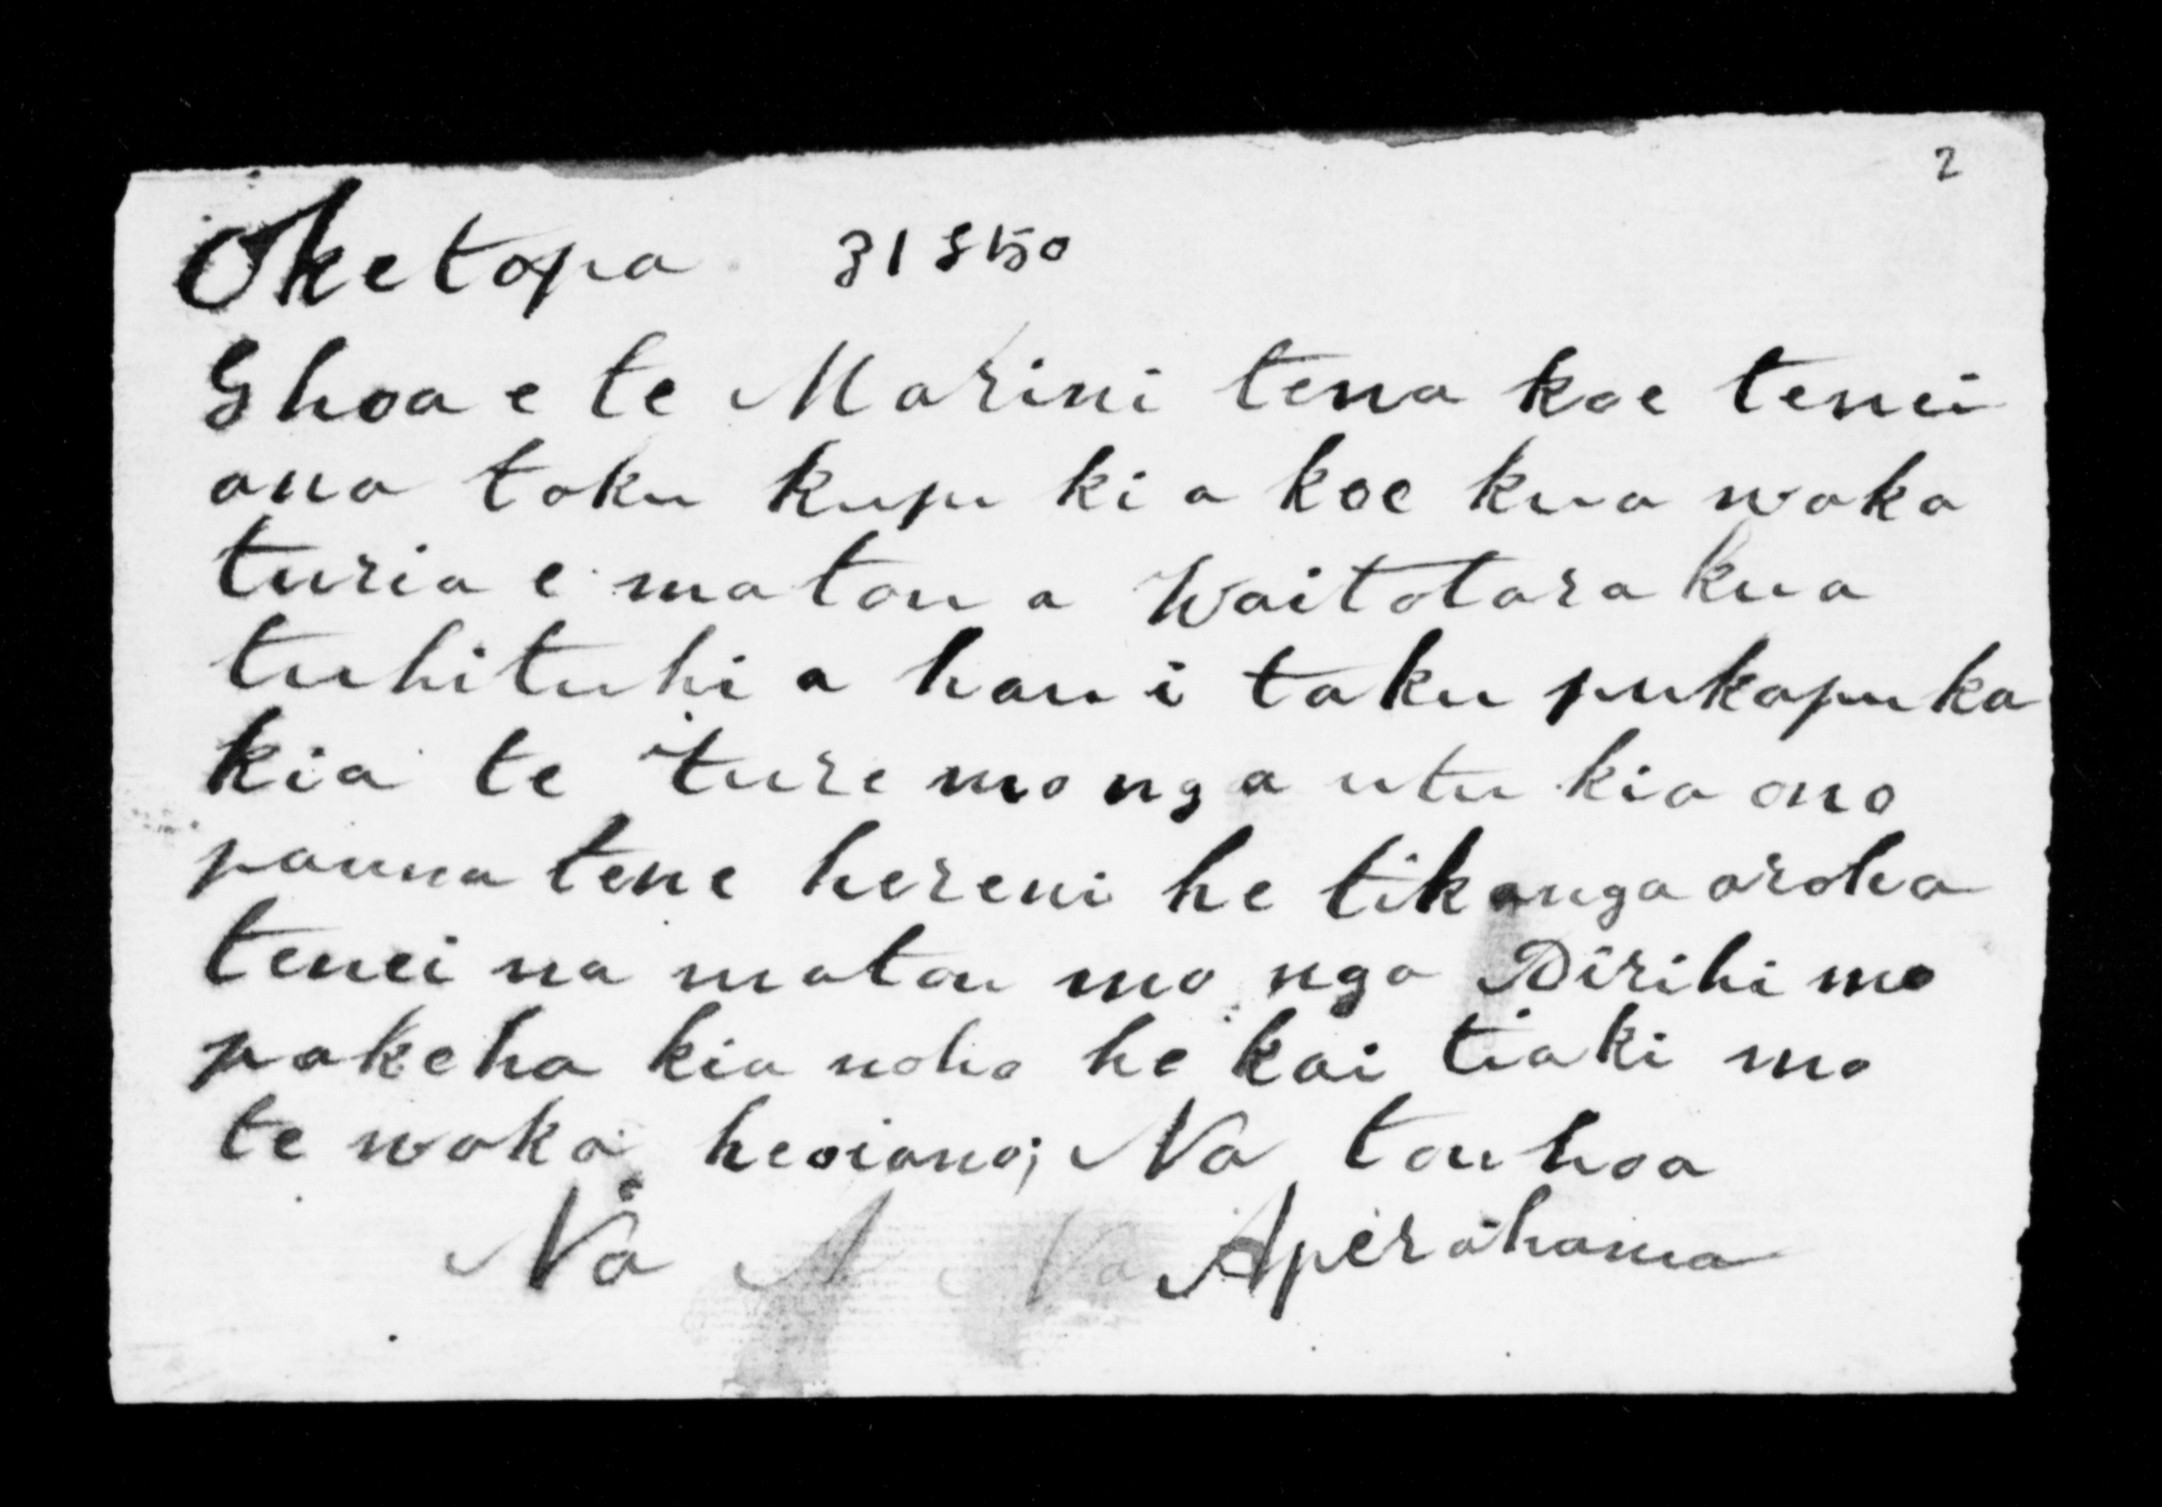 2
Oketopa 31 1850
E hoa e te Makarini tena koe tenei
ano toku kupu ki a koe kua waka
turia e matou a Waitotara kua
tuhituhi a hau i taku pukapuka
kia te ture mo nga utu kia ono
pauna tene hereni he tikanga aroha
tenei na matou mo nga Pirihimo
pakeha kia noho he kai tiaki mo
te waka heoiano; Na tou hoa
Na A Na Aperahama